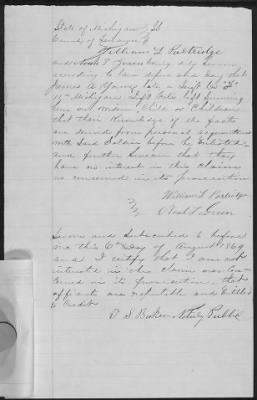 State of Michigan } SS
County of Lenawee
William L Partridge
and Noah P Green being duly sworn
according to law depose and say that
James A Young late a Sergt Co F
11th Michigan Left
him no widow Child or Children
that their knowledge of the facts
are derived from personal acquaintance
with Said Soldier before he Enlisted
and further Swears that they
have no interest in this claim
nor concerned in its prosecution
William L Partridge
Green
Sworn and Subscribed to before
me this 6th Day of August 1869
and I certify that I am not
interested in this claim nor con
cerned in its prosecution, that
affiants are reputable and Entitled
to Credit
Notary Public